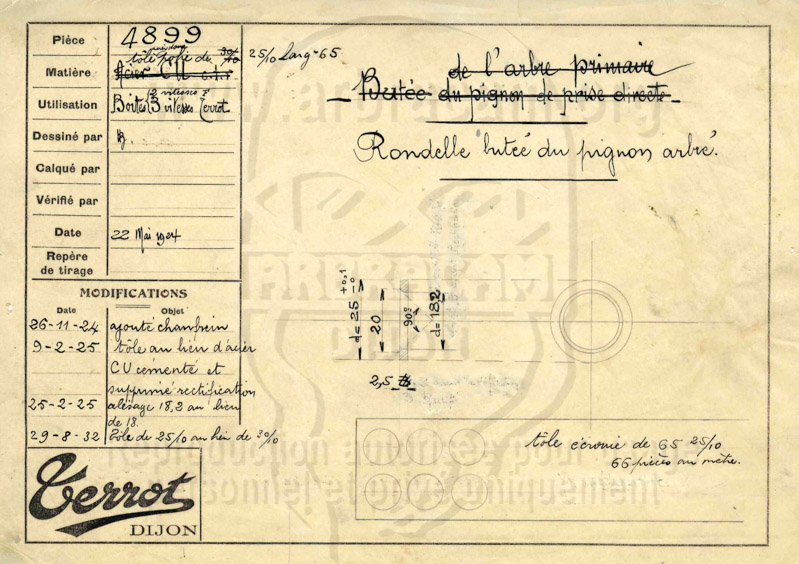 Pièce 4899
tôle polie de 25/10 Larg = 65
Matière Acier CU c.t.r
2 vitesses &
Utilisation Boîtes 3 vitesses Terrot
Dessiné par
Calqué par
Vérifié par
Date 22 Mai 1924
Repère
de tirage
MODIFICATIONS
Date Objet
26-11-24 ajouté chanfrein
9-2-25 tôle au lieu d'acier
CU cementé et
supprimé rectification
25-2-25 alésage 18,2 au lieu
de 18.
29-8-32 Tôle de 25/10 au lieu de 30/10
Terrot
DIJON
de l'arbre primaire
Butée du pignon de prise directe
Rondelle butée du pignon arbré.
d=25 +0,1 -0
20
90°
d=18,2
2,5
tôle écrouie de 65 25/10
66 pièces au mètre.
www.arbracam.org
ARBRACAM
Reproduction autorisée pour usage
personnel et privé uniquement